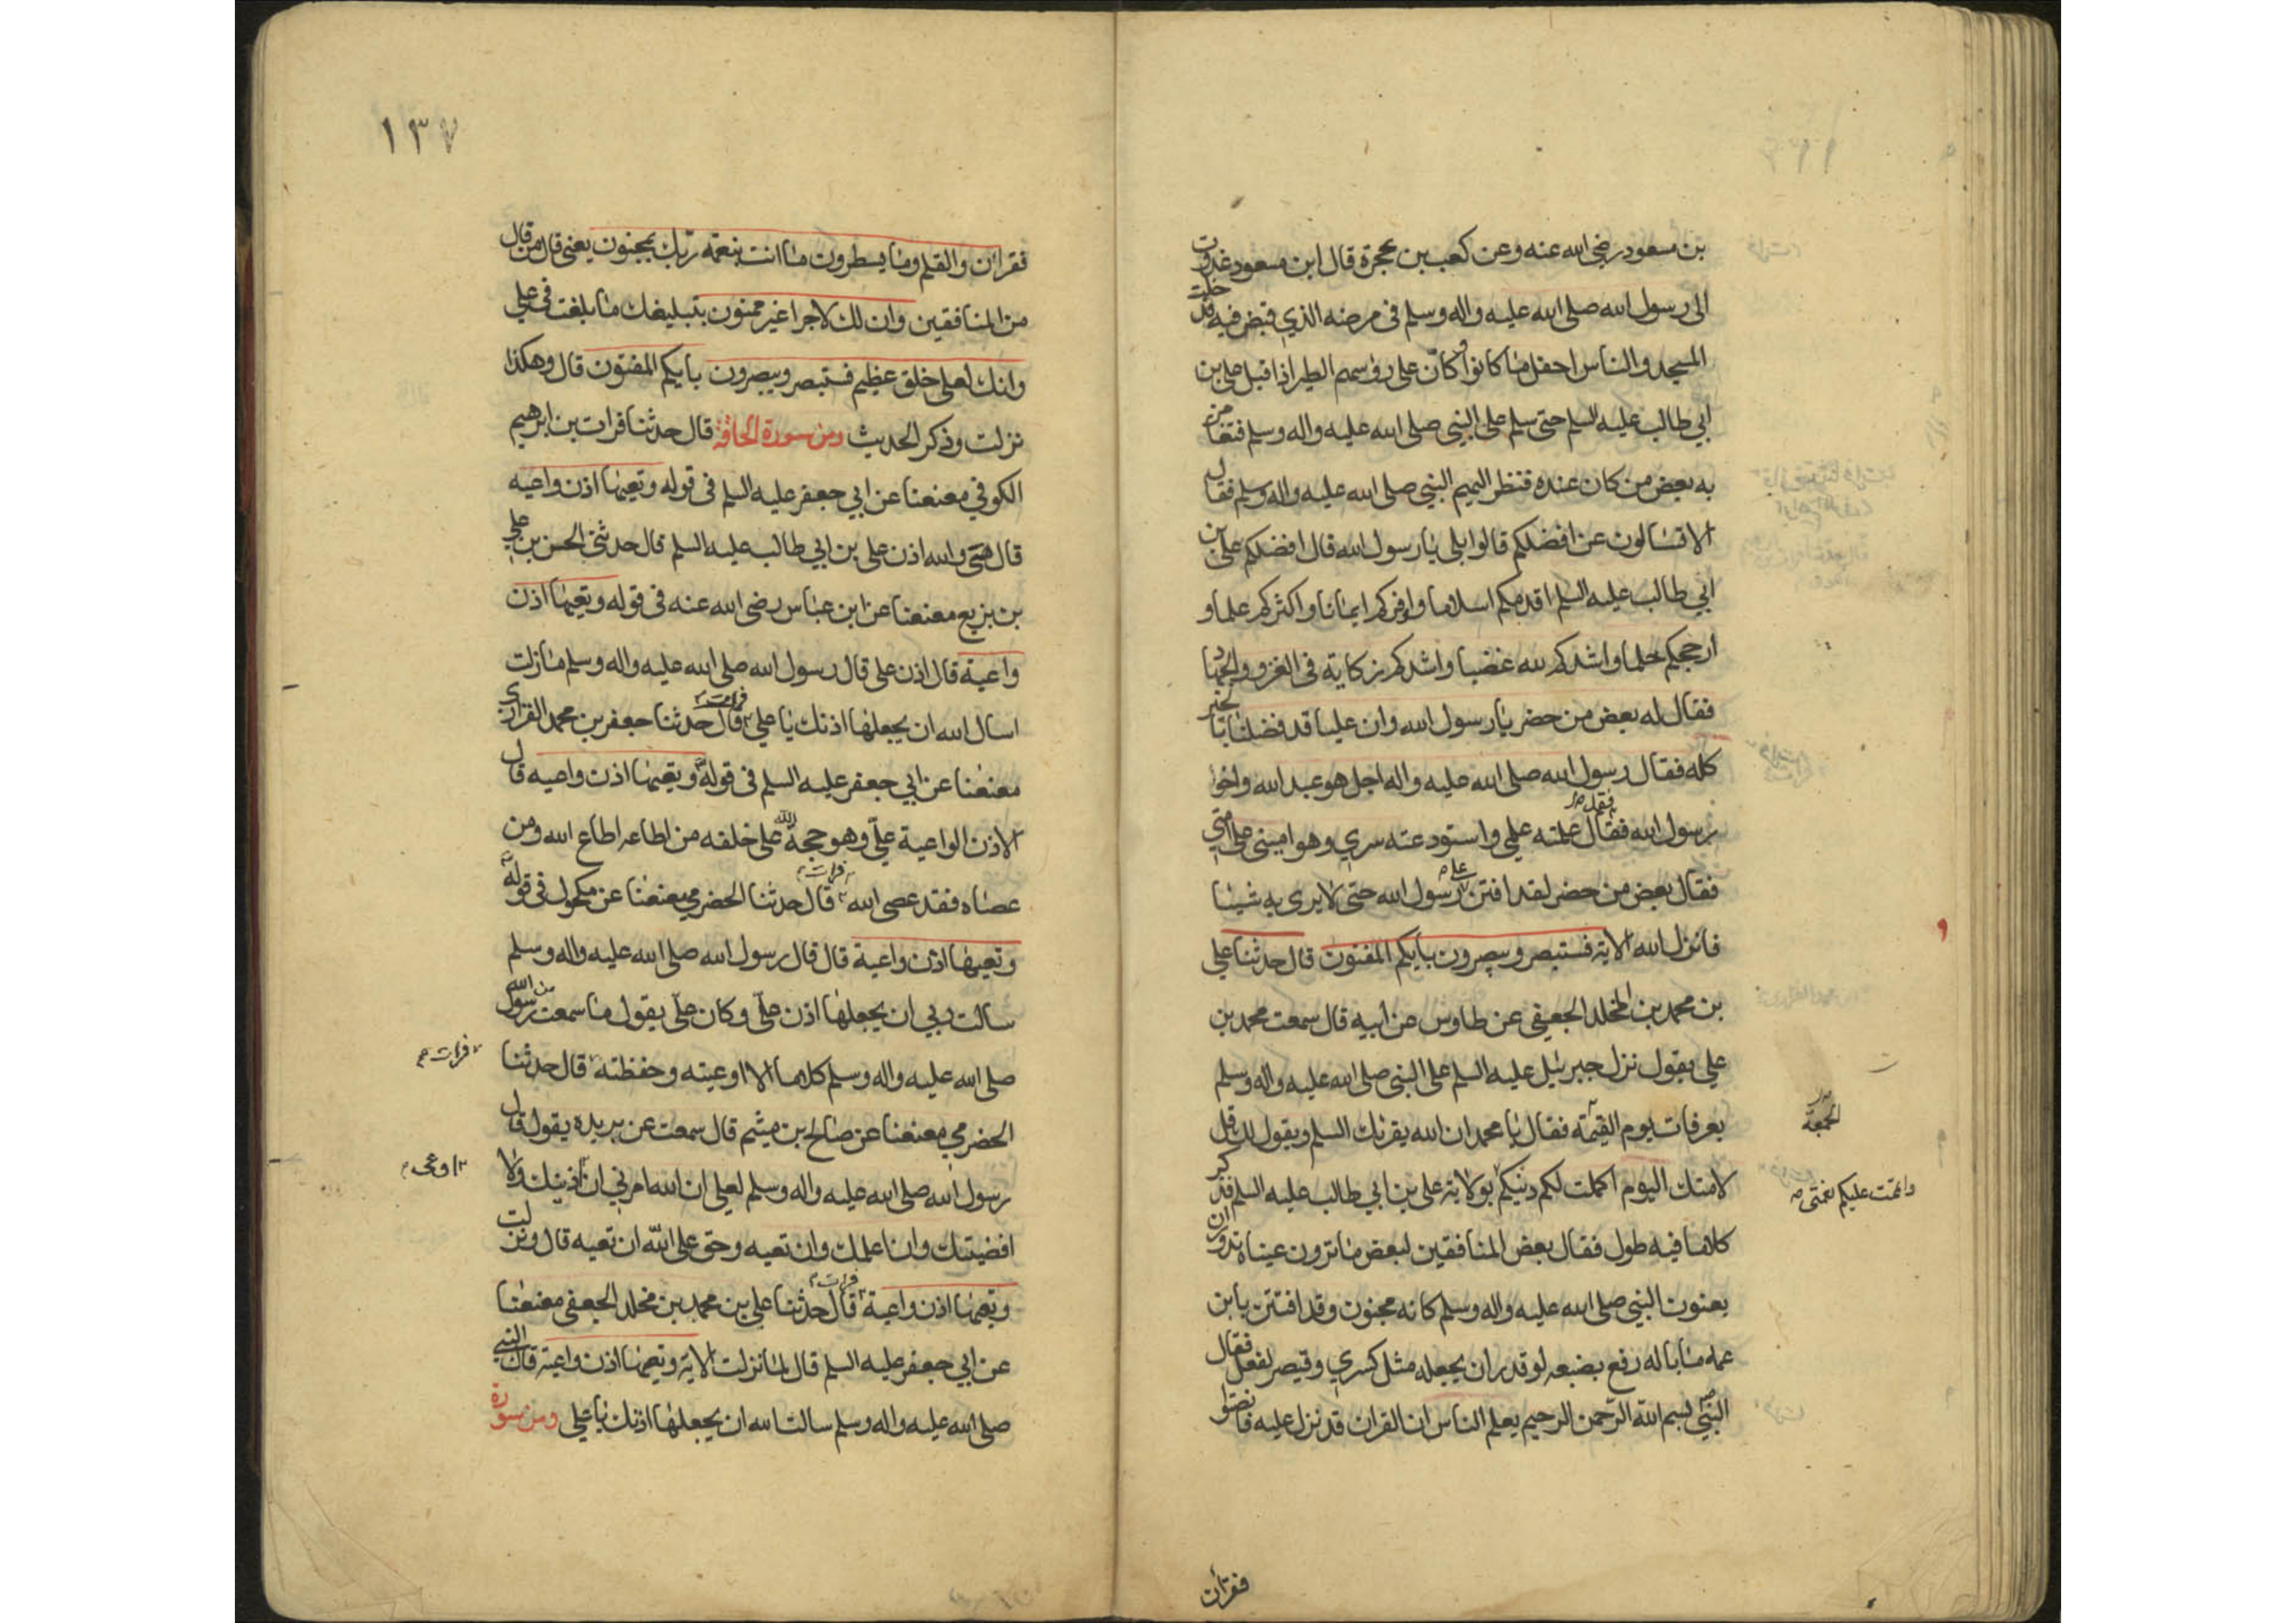 بن مسعود رضي الله عنه وعن كعب بن عجرة قال ابن مسعود غدوت
الى رسول الله صلى الله عليه واله وسلم في مرضه الذي قبض فيه فدخلت
المسجد والناس احفل ما كانوا وكان على روسهم الطير اذا اقبل علي بن
ابي طالب عليه السلم حتى سلم على النبي صلى الله عليه واله وسلم فتغامز
به بعض من كان عنده فنظر اليهم النبي صلى الله عليه واله وسلم فقال
الا تسالون عن افضلكم قالوا بلى يا رسول الله قال افضلكم علي بن
ابي طالب عليه السلم اقدمكم اسلاما واوفركم ايمانا واكثركم علما و
ارجحكم حلما واشدكم لله غضبا واشدكم نكاية في الغزو والجهاد
فقال له بعض من حضر يا رسول الله وان عليا قد فضلنا بالخير
كله فقال رسول الله صلى الله عليه واله اجل هو عبد الله واخو
رسول الله فقال علمته علمي واستودعته سري وهو اميني على امتي
فقد
فقال بعض من حضر لقد افتن علي رسول الله حتى لا يرى به شيئا
فانزل الله الاية فستبصر ويبصرون بايكم المفتون قال حدثنا علي
بن محمد بن المخلد الجعفي عن طاوس عن ابيه قال سمعت محمد بن
علي يقول نزل جبرئيل عليه السلم على النبي صلى الله عليه واله وسلم
بعرفات يوم القيمة فقال يا محمد ان الله يقرئك السلم ويقول لك قل
الجمعة
لامتك اليوم اكملت لكم دينكم بولاية علي بن ابي طالب عليه السلم فذكر
واتممت عليكم نعمتي
كلاما فيه طول فقال بعض المنافقين لبعض ما ترون عيناه تدوران
يعنون النبي صلى الله عليه واله وسلم كانه مجنون وقد افتتن بابن
عمه ما باله رفع بضبعه لو قدر ان يجعله مثل كسري وقيصر لفعل فقال
النبي بسم الله الرحمن الرحيم يعلم الناس ان القران قد نزل عليه فانصتوا
فقرأ ن
١٣٧
فقرا ن والقلم وما يسطرون ما انت بنعمة ربك بمجنون يعني قال من قال
من المنافقين وان لك لاجرا غير ممنون بتبليغك ما بلغت في علي
وانك لعلى خلق عظيم فستبصر ويبصرون بايكم المفتون قال وهكذا
نزلت وذكر الحديث ومن سورة الحاقة قال حدثنا فرات بن ابرهيم
الكوفي معنعنا عن ابي جعفر عليه السلم في قوله وتعيها اذن واعية
قال هي والله اذن علي بن ابي طالب عليه السلم قال حدثني الحسن بن علي
بن بزيع معنعنا عن ابن عباس رضي الله عنه في قوله وتعيها اذن
واعية قال اذن علي قال رسول الله صلى الله عليه واله وسلم ما زلت
اسال الله ان يجعلها اذنك يا علي فرات قال حدثنا جعفر بن محمد الفزاري
معنعنا عن ابي جعفر عليه السلم في قوله وتعيها اذن واعية قال
الاذن الواعية علي وهو حجة الله على خلقه من اطاعه اطاع الله ومن
عصاه فقد عصى الله فرات قال حدثنا الحضرمي معنعنا عن مكحول في قوله
وتعيها اذن واعية قال قال رسول الله صلى الله عليه واله وسلم
سالت ربي ان يجعلها اذن علي وكان علي يقول ما سمعت من رسول الله
صلى الله عليه واله وسلم كلاما الا اوعيته وحفظته قال حدثنا
فرات
الحضرمي معنعنا عن صالح بن ميثم قال سمعت عن بريده يقول قال
رسول الله صلى الله عليه واله وسلم لعلي ان الله امرني ان اذنيك ولا
اقصيتك وان اعلمك وان تعيه وحق على الله ان تعيه قال ونزلت
وتعيها اذن واعية فرات قال حدثنا علي بن محمد بن مخلد الجعفي معنعنا
عن ابي جعفر عليه السلم قال لما نزلت الاية وتعيها اذن واعية قال النبي
صلى الله عليه واله وسلم سالت الله ان يجعلها اذنك يا علي ومن سورة